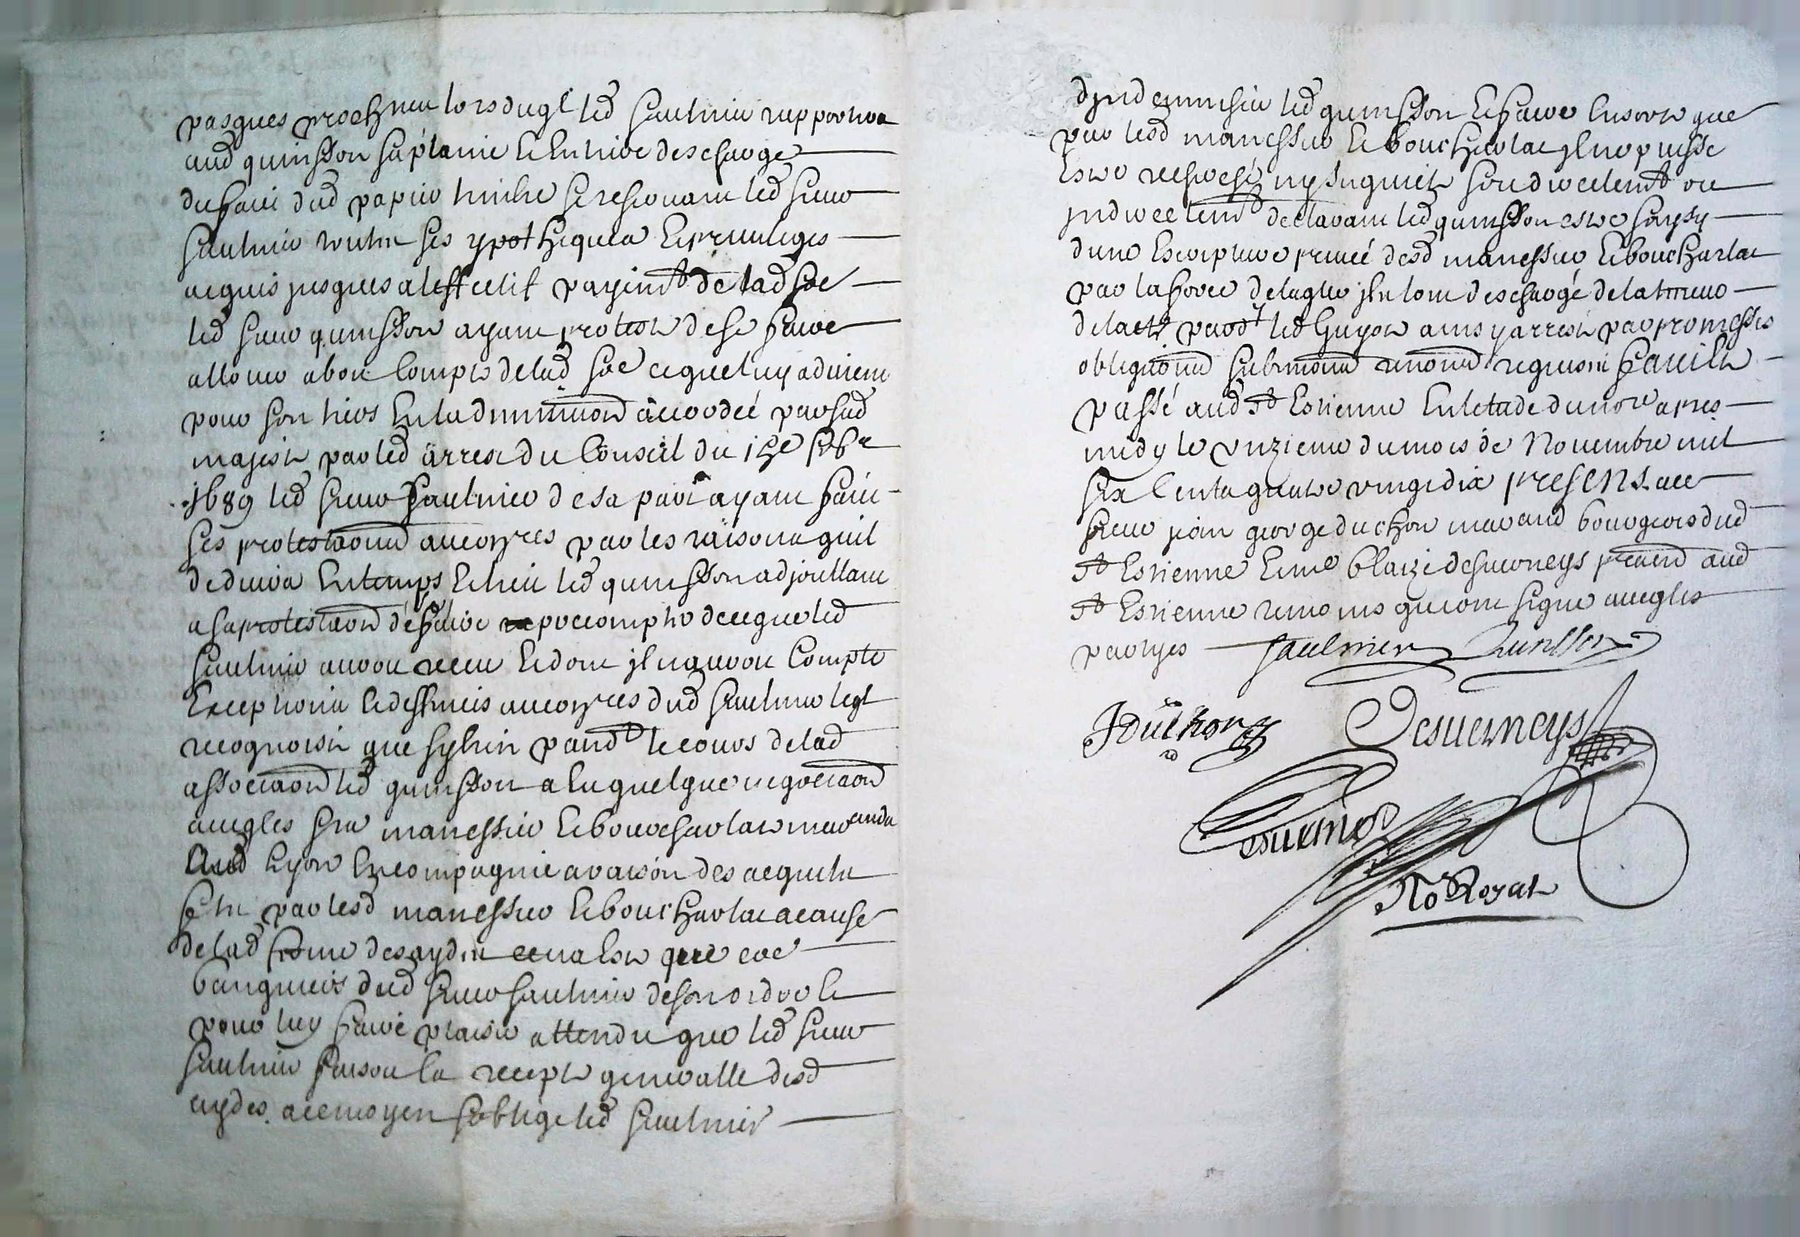 pasques prochain lors duql led Saulnier rapportera
aud quinsson sa plaine & entiere descharge
du faict dud papier timbre se reservant led sieur
Saulnier toutes ses ypotheques & privileges
acquis jusques a leffectif payemt de lad soe
led sieur quinsson ayant proteste de se faire
allouer a bon compte de lad soe ce quil luy advient
pour son tiers en la diminuon accordée par sad
majeste par led arrest du Conseil du 15e 
1689 led sieur Saulnier de sa part ayant faict
ses protestaons au conres par les raisons quil
deduira en temps & lieu led quinsson adjoustant
a sa protestaon de faire compte de ce que led
Saulnier auroit receu & dont il nauroit compte
Exceptions & deffences au conres dud Saulnier leql
recognoist que sy bien pandt le cours de lad
associaon led quinsson a eu quelque negociaon
avec les srs manessier & boucharlat marchands
aud Lyon En compagnie a raison des acquits
faits par lesd manessier & boucharlat a cause
de lad ferme des aydes ce na este que
banquiers dud sieur Saulnier de son ordre &
pour luy faire plaisir attendu que led sieur
Saulnier faisoit la recepte generalle desd
aydes a ce moyen soblige led Saulnier
dindemniser led quinsson & faire en sorte que
par lesd manessier & boucharlat il ne puisse
estre recherché ny inquieté soit directemt ou
indirectemt declarant led quinsson estre saysy
dune Escripture privée desd manessier & boucharlat
par la force de laqlle ils lont deschargé de la teneur
de lacte pardt led Guyot ainsy arreste par promesses
obligaons submions renons requisoires faict &
passé aud St Estienne en lestude du nore apres
midy le unzieme du mois de Novembre mil
six Cents quatre vingt dix presens a ce
sieur jean george duchon marand bourgeois dud
St Estienne & me blaize desverneys pratn aud
St Estienne temoins qui ont signe avec les
partyes Saulnier Quinsson
J Duchon Desverneys
Desverneys
No Royal